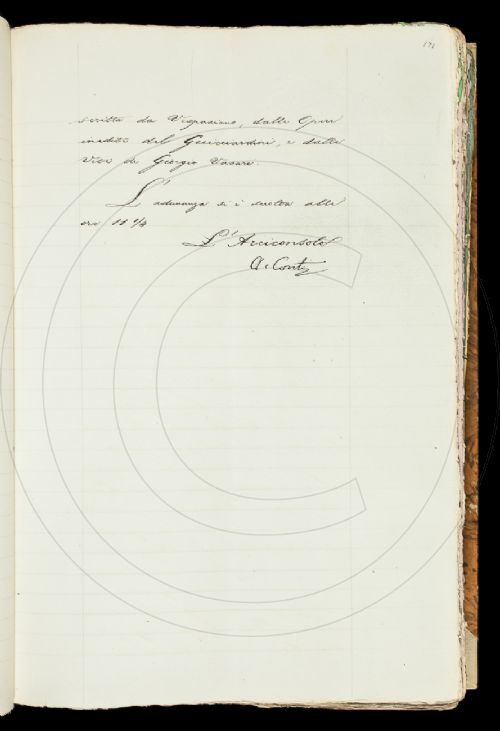 scritta da Vespasiano, dalle Opere
inedite del Guicciardini, e dalle
Vite di Giorgio Vasari.
L'adunanza si è sciolta alle
ore 11 1/4
L'Arciconsolo
A. Conti